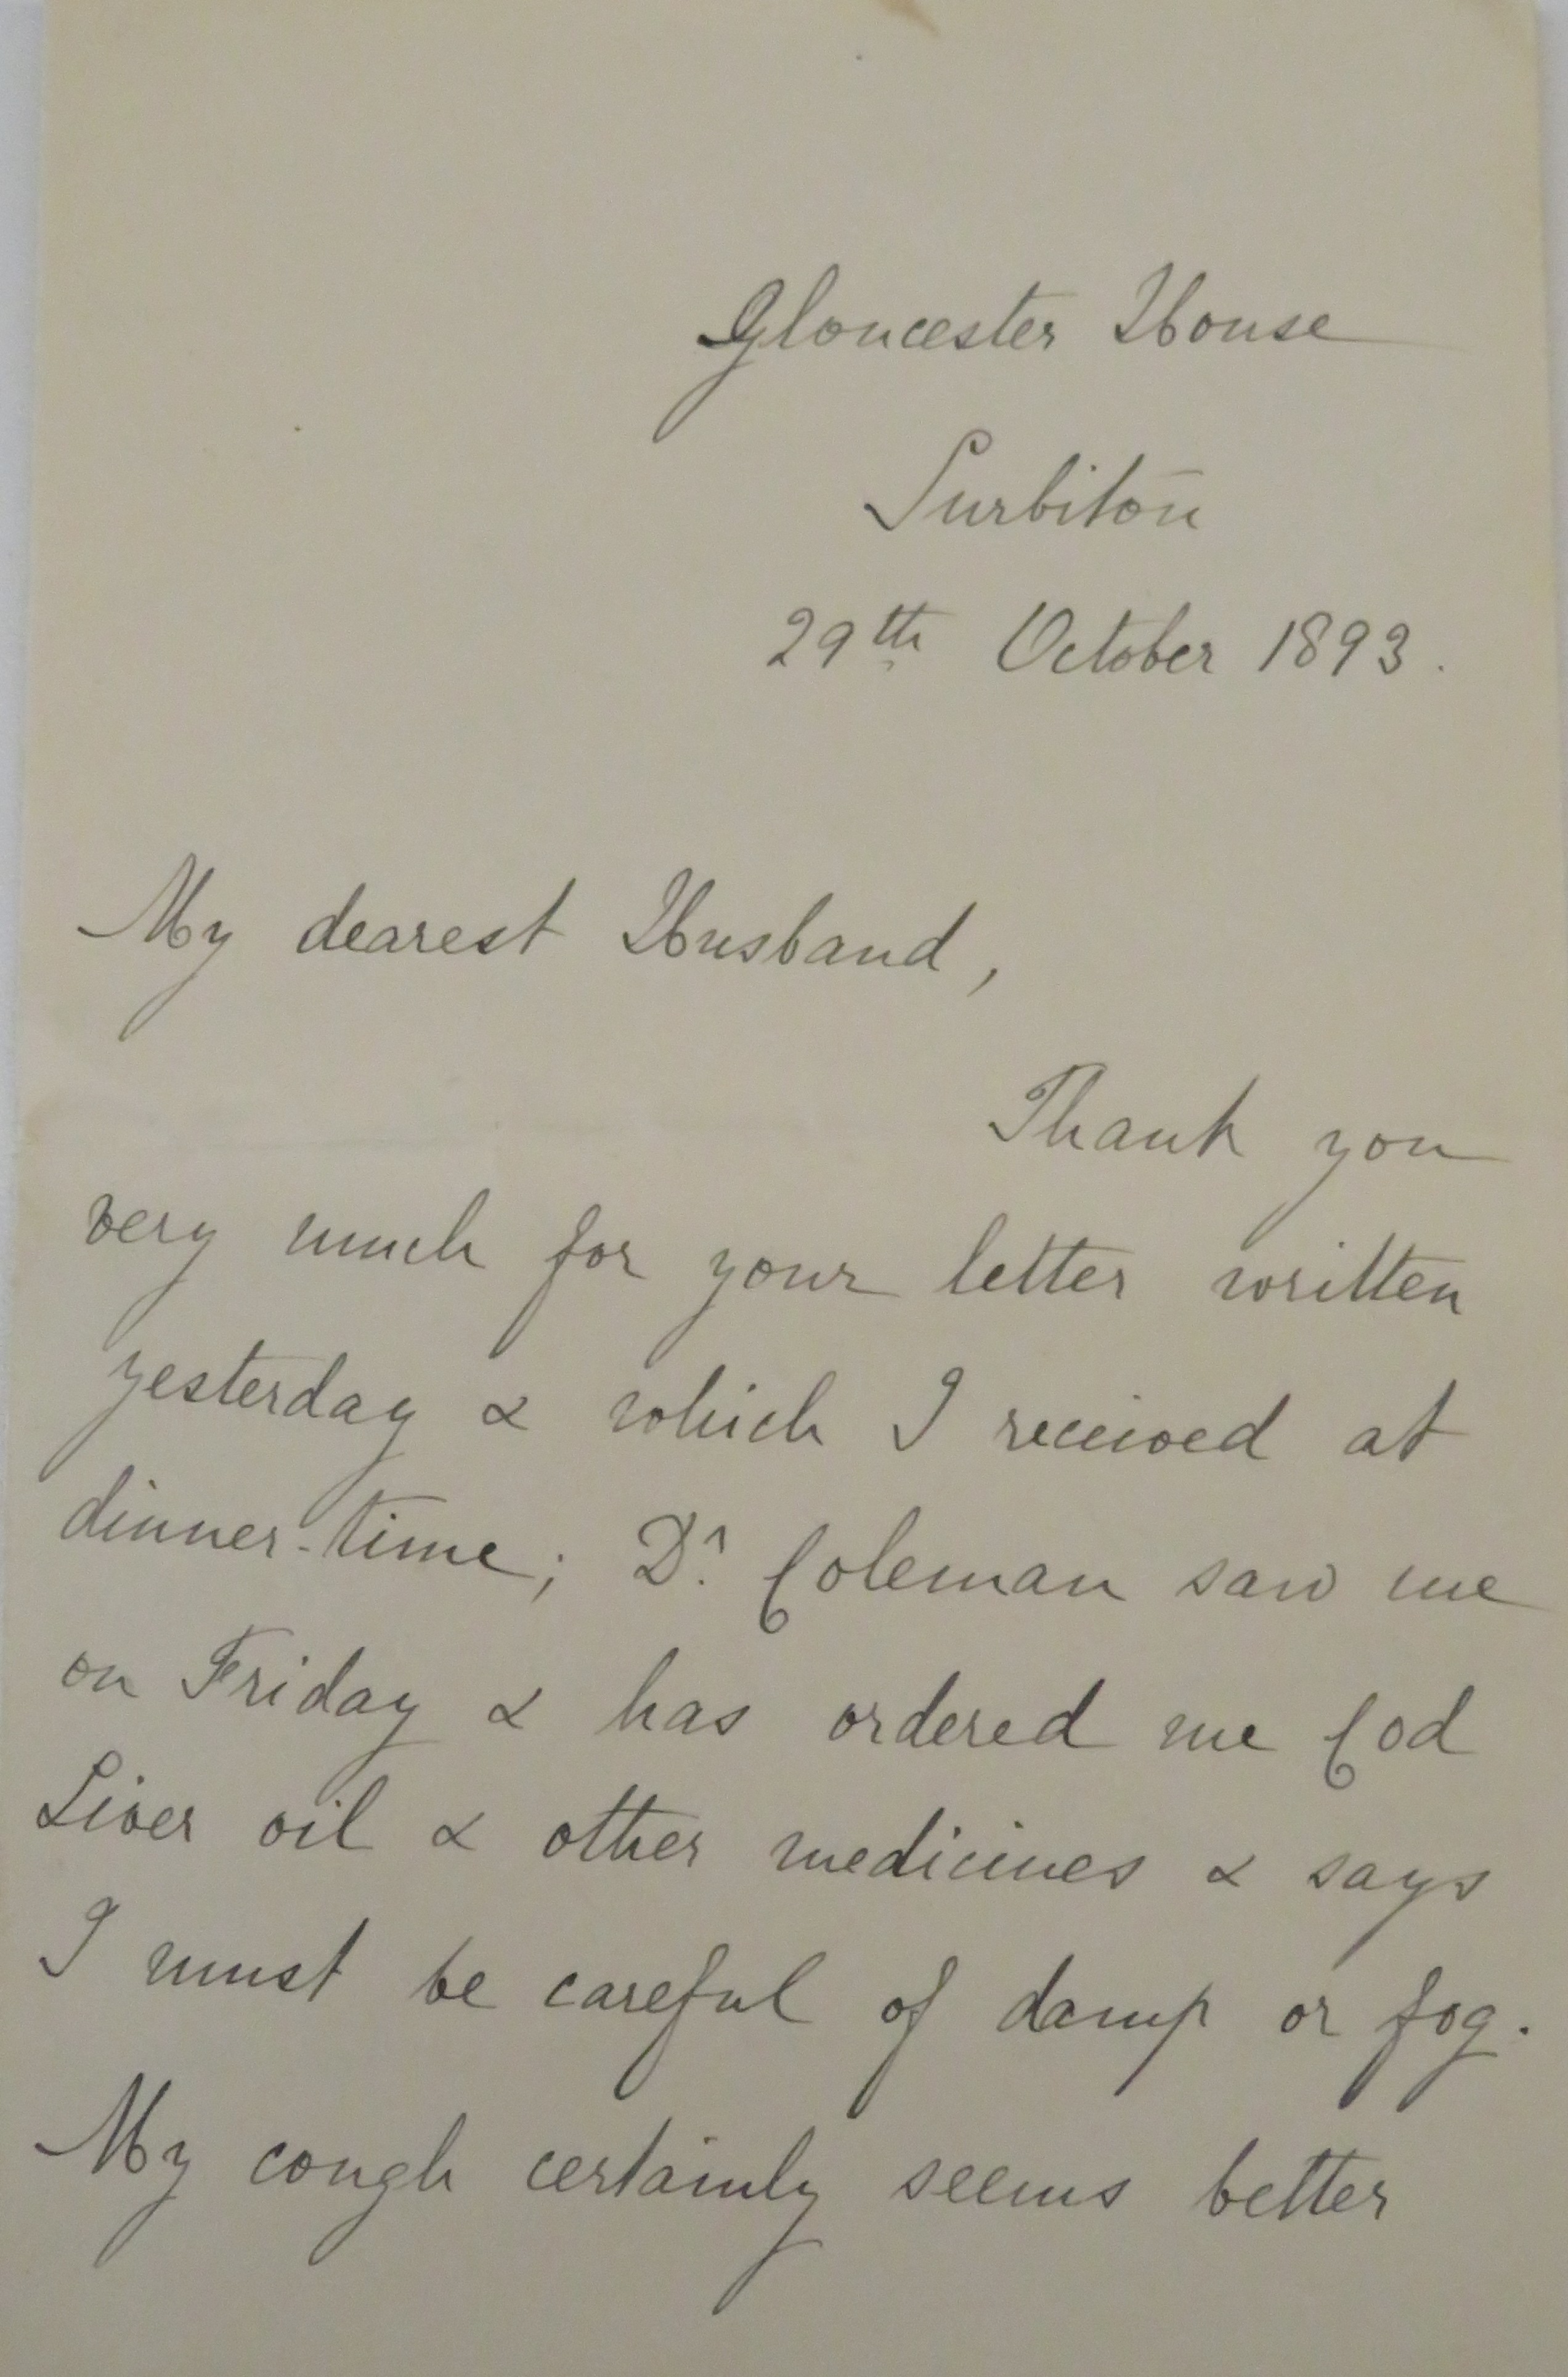 Gloucester House
Surbiton
29th October 1893.
My dearest Husband,
Thank you
very much for your letter written
yesterday & which I received at
dinner-time; Dr. Coleman saw me
on Friday & has ordered me Cod
Liver oil & other medicines & says
I must be careful of damp or fog.
My cough certainly seems better